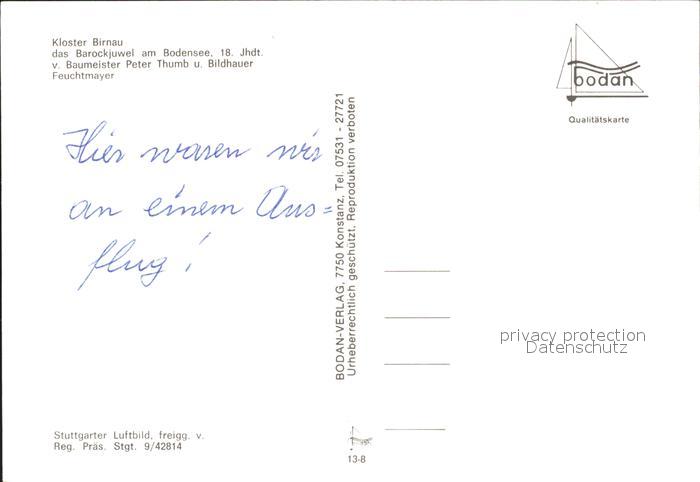 Kloster Birnau
das Barockjuwel am Bodensee, 18. Jhdt.
v. Baumeister Peter Thumb u. Bildhauer
Feuchtmayer
Hier waren wir
an einem Aus=
flug!
Stuttgarter Luftbild, freigg. v.
Reg. Präs. Stgt. 9/42814
BODAN-VERLAG, 7750 Konstanz, Tel. 07531 - 27721
Urheberrechtlich geschützt, Reproduktion verboten
13-8
bodan
Qualitätskarte
privacy protection
Datenschutz